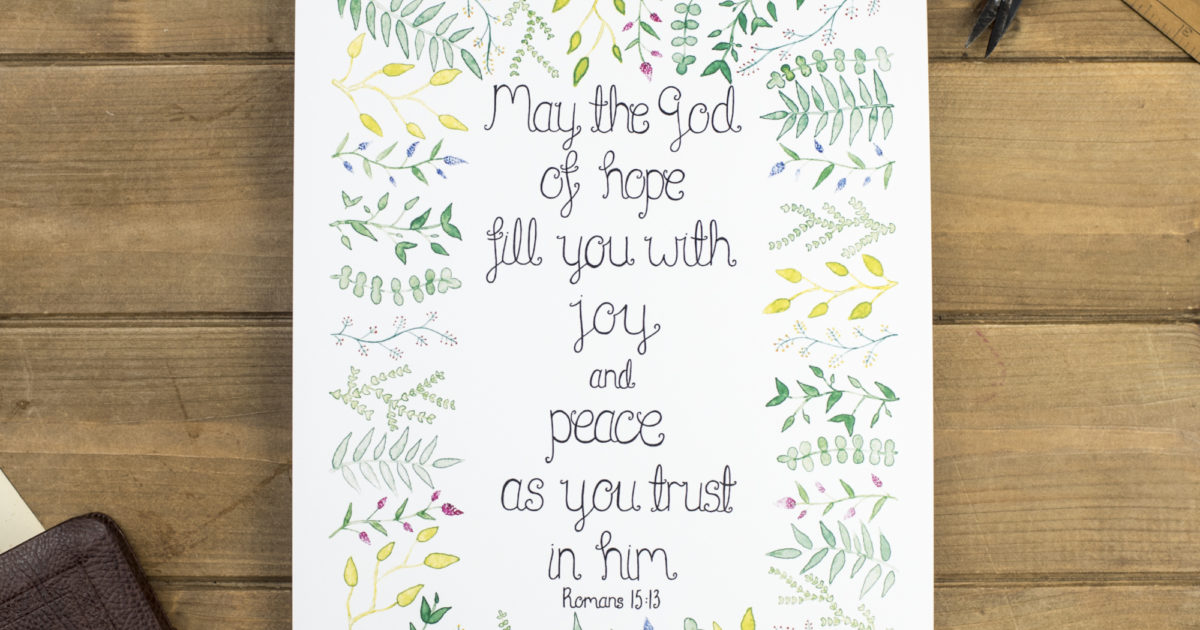 May the God
of hope
fill you with
joy
and
peace
as you trust
in him
Romans 15:13